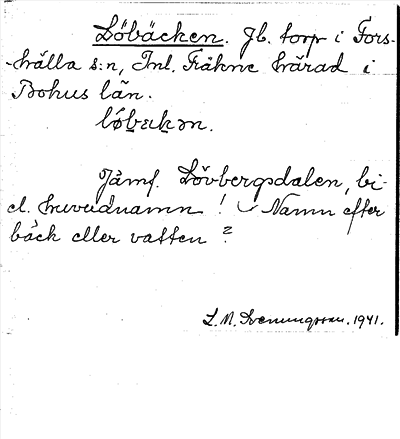 Löbäcken. Jb. torp i Fors-
-hälla s:n, Inl. Fräkne härad i
Bohus län.
Jämf. Lövbergsdalen, bi-
el. huvudnamn! Namn efter
bäck eller vatten?
S. M. Svenungsson. 1941.